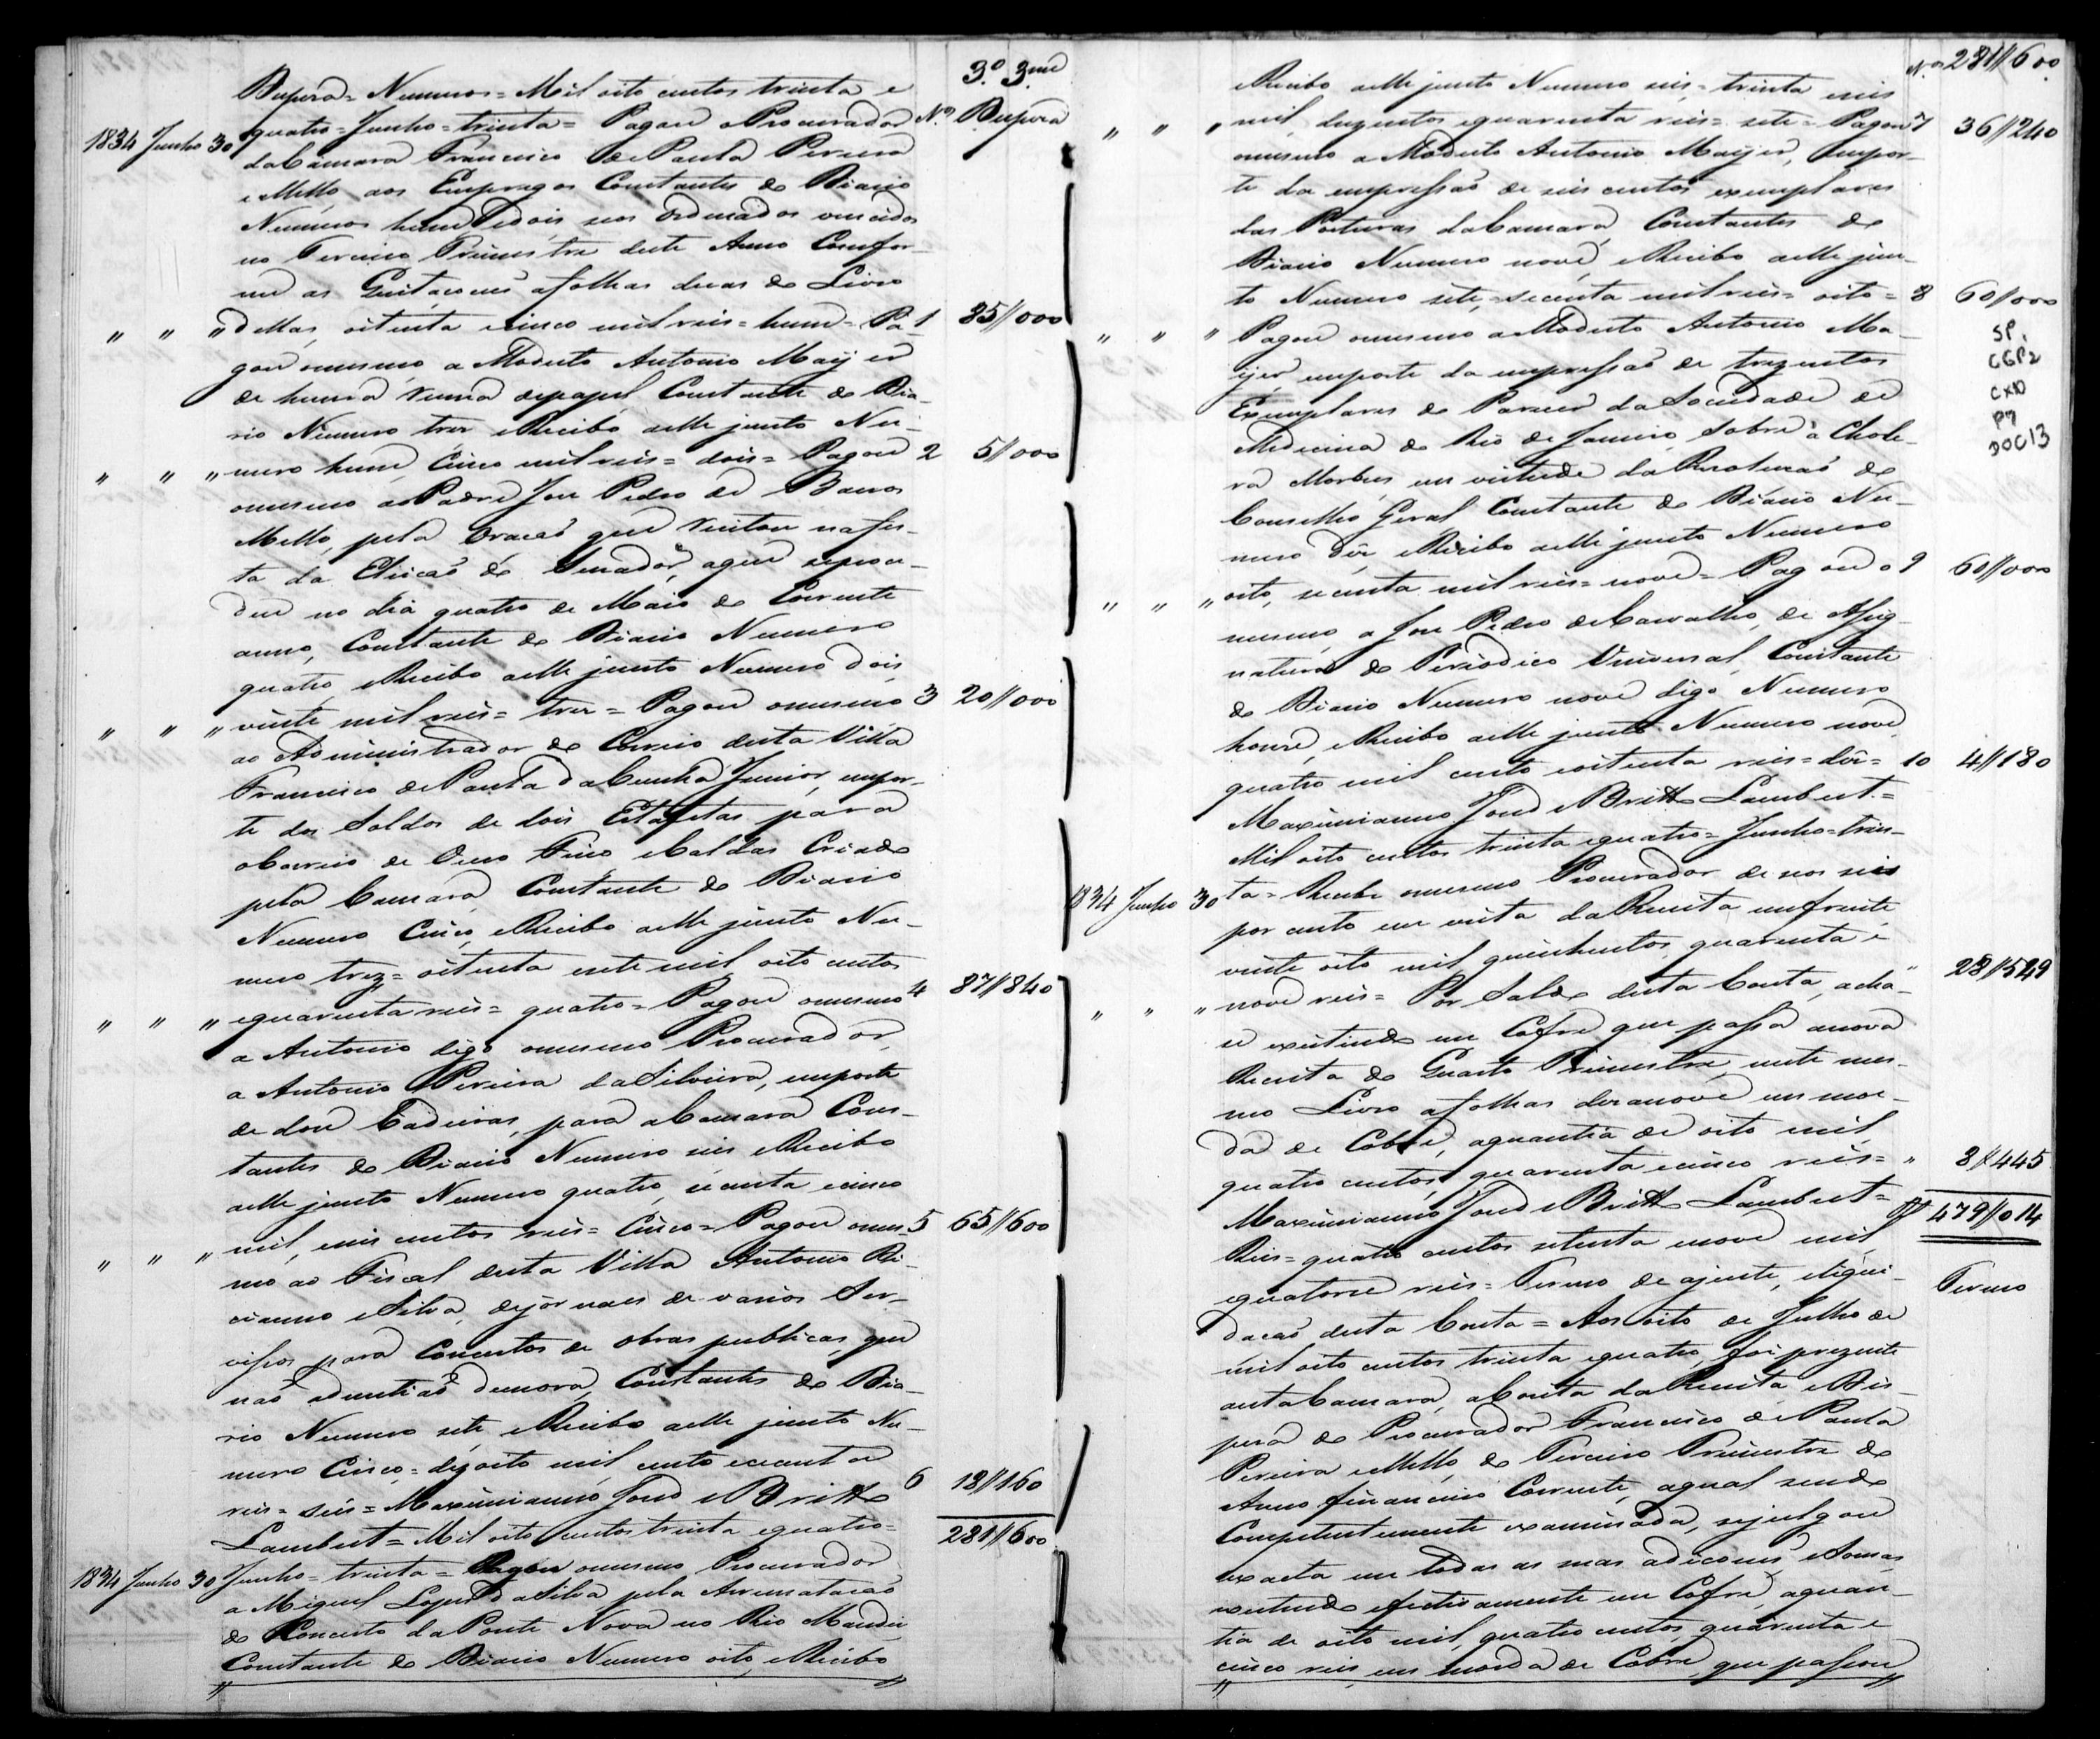 3.º 3.me
Despeza = Numeros = Mil oito centos trinta e
quatro = Junho = trinta = Pagou o Procurador Nº Despeza
1834 Junho 30
da Camara Francisco de Paula Pereira
e Mello, aos Empregos Constantes do Diario
Numeros hum e dois, seus Ordenados vencidos
no Terceiro Trimestre deste Anno Confor-
me as Quitaçoens a folhas duas do Livro
" " " dellas, oitenta e cinco mil reis = hum = Pa- 1 85//000
gou o mesmo, a Modesto Antonio Mayer
de huma resma de papel Constante do Dia-
rio Numero trez e Recibo a elle junto Nu-
" " " mero hum, Cinco mil reis = dois = Pagou 2 5//000
o mesmo ao Padre Jose Pedro de Barros
Mello, pela Oração que recitou na fes-
ta da Eleição de Senador, a que se proce-
deu no dia quatro de Maio do Corrente
anno, Constante do Diario Numero
quatro e Recibo a elle junto Numero dois,
" " " vinte mil reis = trez = Pagou o mesmo 3 20//000
ao Administrador do Correio desta Villa
Francisco de Paula da Cunha Junior, impor-
te dos Soldos de dois Estafetas para
o Correio de Ouro Fino e Caldas Criado
pela Camara, Constante do Diario
Numero Cinco, e Recibo a elle junto Nu-
mero trez = oitenta e sete mil oito centos
" " " e quarenta reis = quatro = Pagou o mesmo 4 87//840
a Antonio digo o mesmo Procurador,
a Antonio Pereira da Silveira, importe
de doze Cadeiras, para a Camara Cons-
tantes do Diario Numero seis e Recibo
a elle junto Numero quatro, secenta e cinco
" " " mil, seis centos reis = Cinco = Pagou o mes- 5 65//600
mo ao Fiscal desta Villa Antonio Fe-
cianno e Silva, de jornaes de varios Ser-
viços para Concertos de obras publicas, que
não admitião demora, Constantes do Dia-
rio Numero sete, e Recibo a elle junto Nu-
mero Cinco = dezoito mil, cento e cecenta
reis = seis = Maximianno Jose de Britto 6 18//160
Lambert = Mil oito centos trinta e quatro = 281//600
1834 Junho 30 Junho = trinta = Pagou o mesmo Procurador
a Miguel Lopes da Silva pela Arrematação
do Concerto da Ponte Nova no Rio Mandu
Constante do Diario Numero oito, e Recibo
Nº 281//600
Recibo a elle junto Numero seis, = trinta e seis
" " " mil, duzentos e quarenta reis = sete = Pagou 7 36//240
o mesmo a Modesto Antonio Mayer, Impor-
te da impressão de seis centos exemplares
das Posturas da Camara, Constantes do
Diario Numero nove, e Recibo a elle jun-
to Numero sete, = secenta mil reis = oito = 8 60//000
SP,
CGP2
CX10
P7
DOC13
" " " Pagou o mesmo a Modesto Antonio Ma-
yer, importe da impressão de trezentos
Exemplares do Parecer da Sociedade de
Medicina do Rio de Janeiro, Sobre a Chole-
ra Morbus, em virtude da Resolução do
Conselho Geral, Constante do Diario Nu-
mero dez, e Recibo a elle junto Numero
" " " oito, secenta mil reis = nove = Pagou o 9 60//000
mesmo, a Jose Pedro de Carvalho, de Assig-
natura do Periodico Universal, Constante
do Diario Numero nove digo Numero
honze, e Recibo a elle junto Numero nove,
quatro mil cento e oitenta reis = dez = 10 4//180
Maximianno Jose de Britto Lambert =
Mil oito centos trinta e quatro = Junho = trin-
1834 Junho 30 ta = Recebe o mesmo Procurador de seos seis
por cento em vista da Receita em frente,
vinte oito mil, quinhentos, quarenta e
" " " nove reis = Por Saldo desta Conta, acha- " 28//549
se existindo em Cofre que passa a nova
Receita do Quarto Trimestre, neste mes-
mo Livro a folhas dezanove em moe-
da de Cobre, a quantia de oito mil,
quatro centos, quarenta e cinco reis = " 8//445
Maximianno Jose de Britto Lambert = 479//014
Reis = quatro centos setenta e nove mil
e quatorze reis = Termo de ajuste, e liqui- Termo
dação desta Conta = Aos oito de Julho de
mil oito centos trinta e quatro, foi prezente
nesta Camara, a Conta da Receita, e Des-
peza do Procurador Francisco de Paula
Pereira e Mello, do Terceiro Trimestre do
Anno financeiro Corrente, a qual sendo
Competentemente examinada, se julgou
exacta em todas as suas adiçoens, e Somas,
existindo efectivamente em Cofre, a quan-
tia de oito mil, quatro centos, quarenta e
cinco reis, em moeda de Cobre, que passou